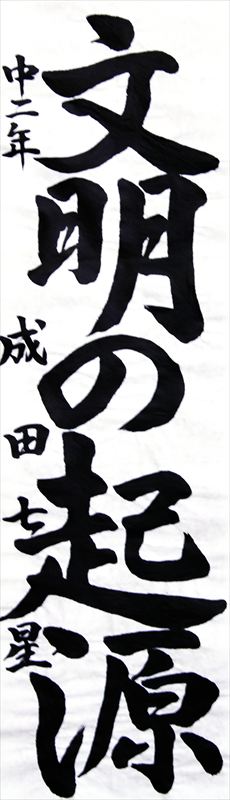 文明の起源
中二年 成田七星